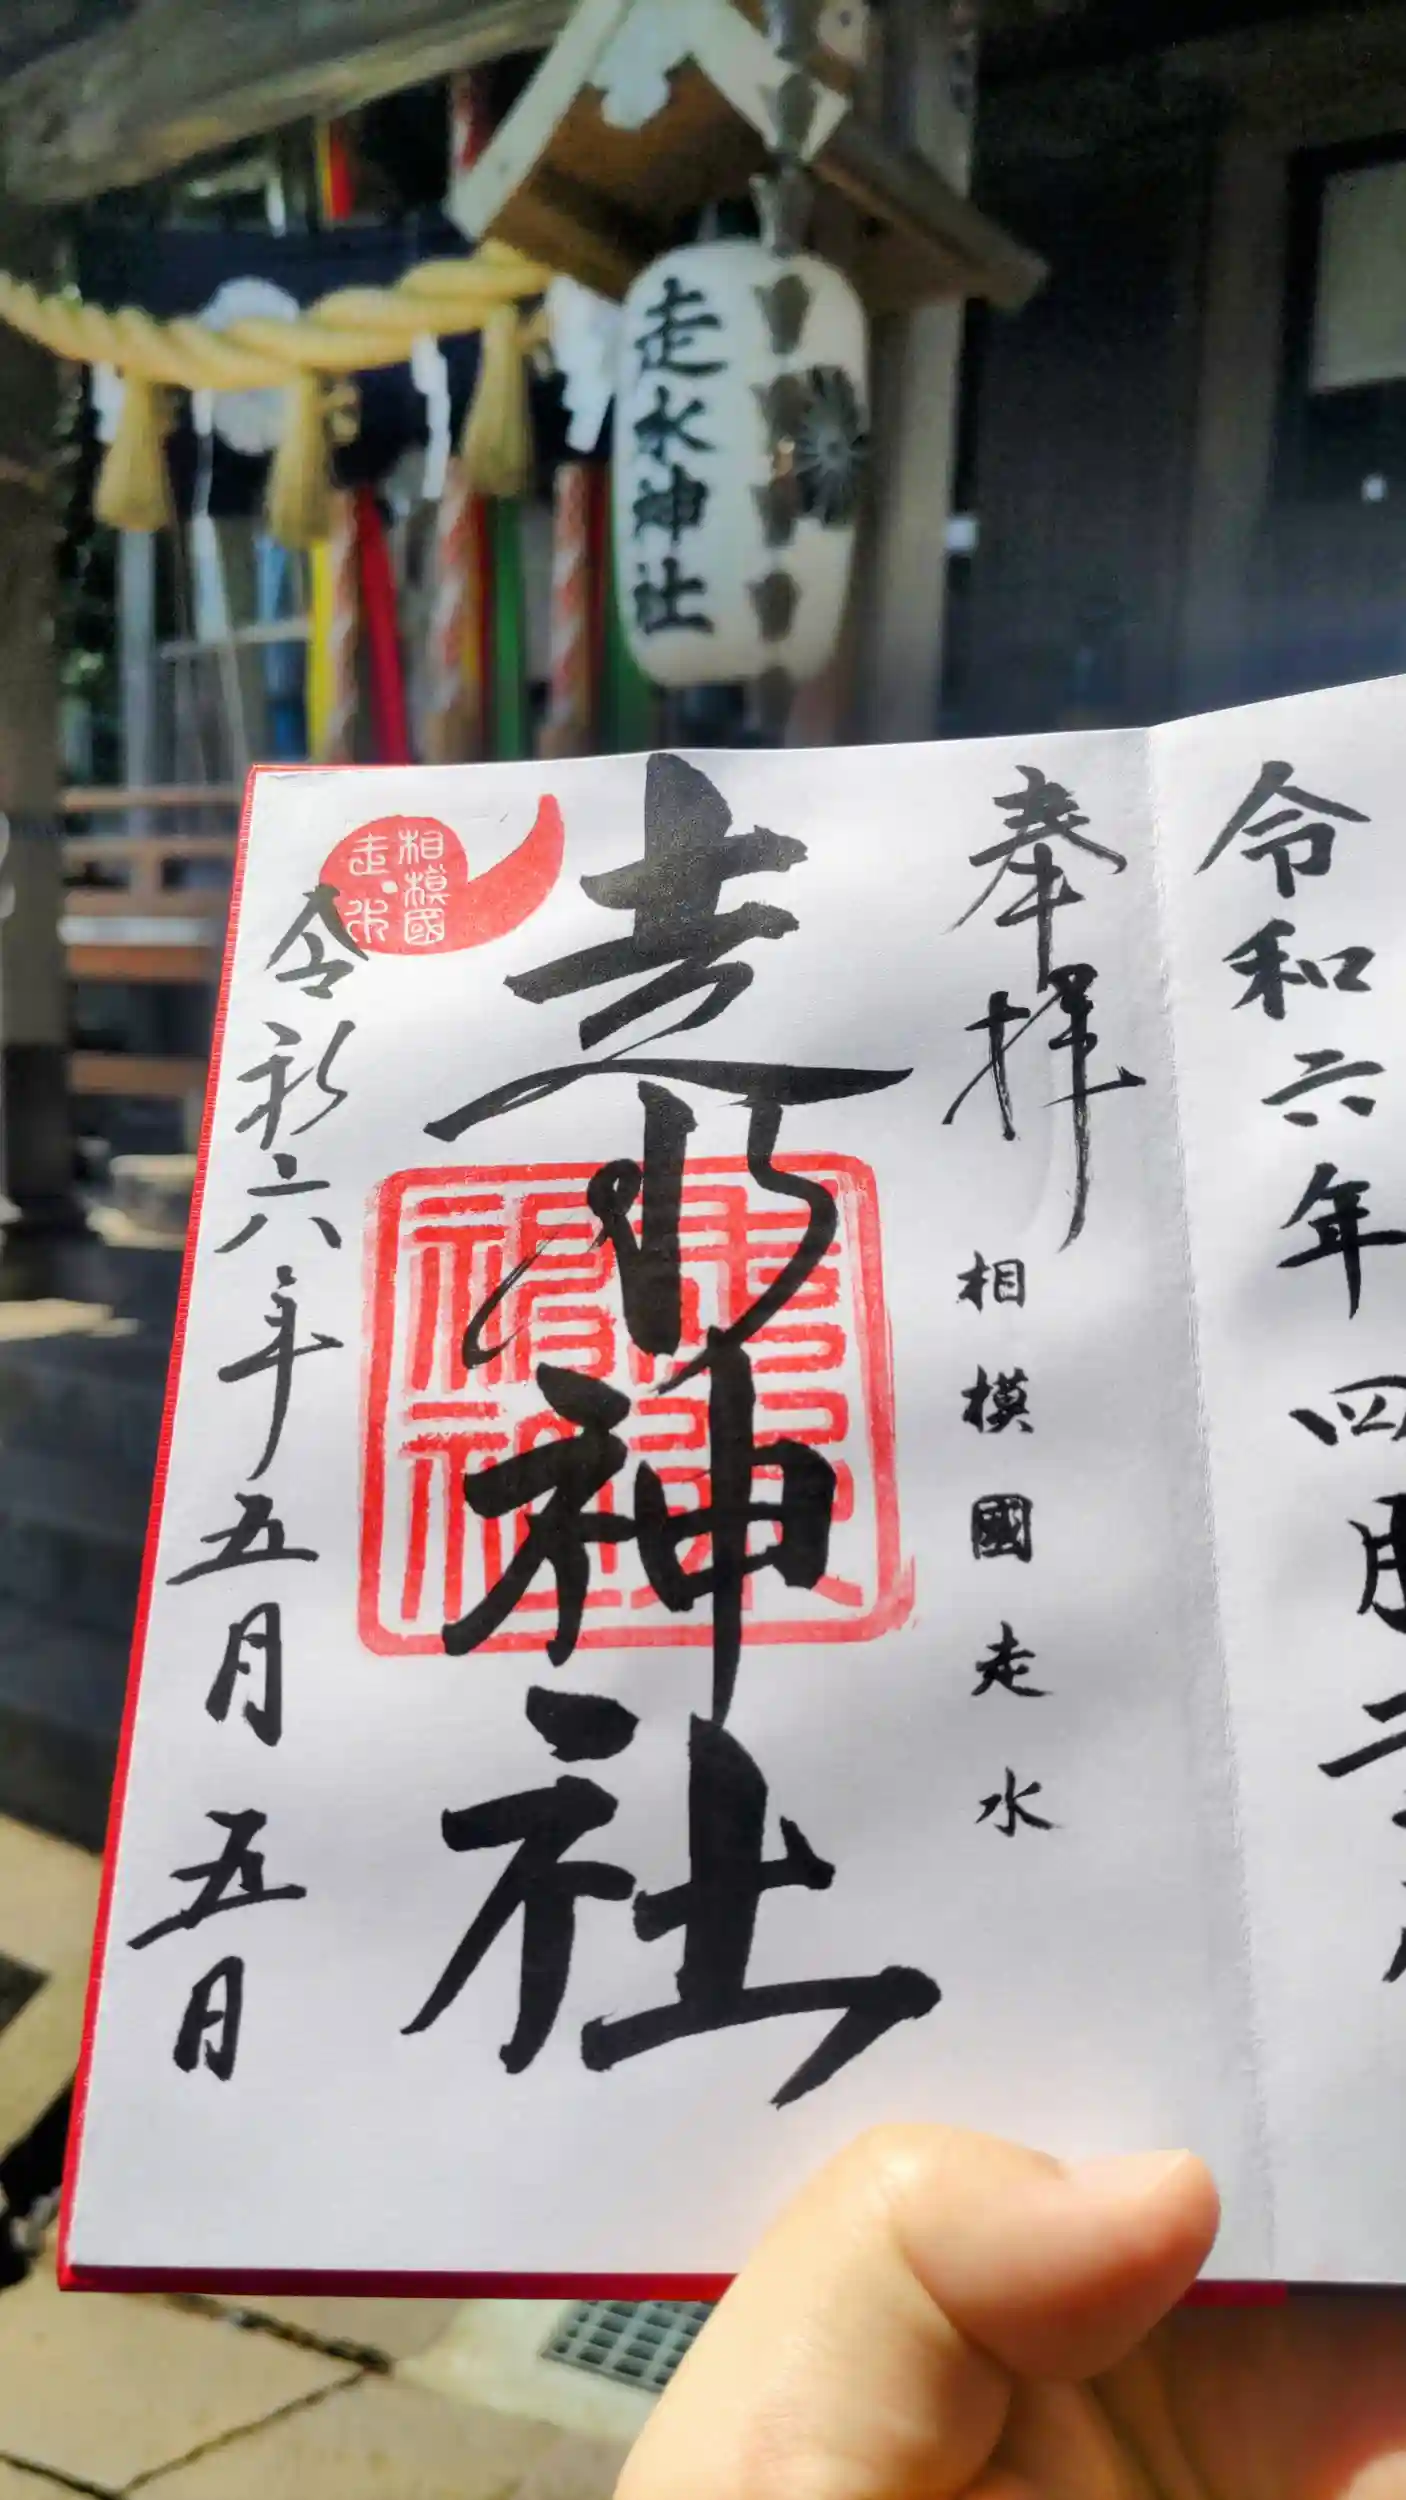 走水神社
令和六年四月二
奉拝
相模國走水
走水神社
相模國
走水
走水神社
令和六年五月五日